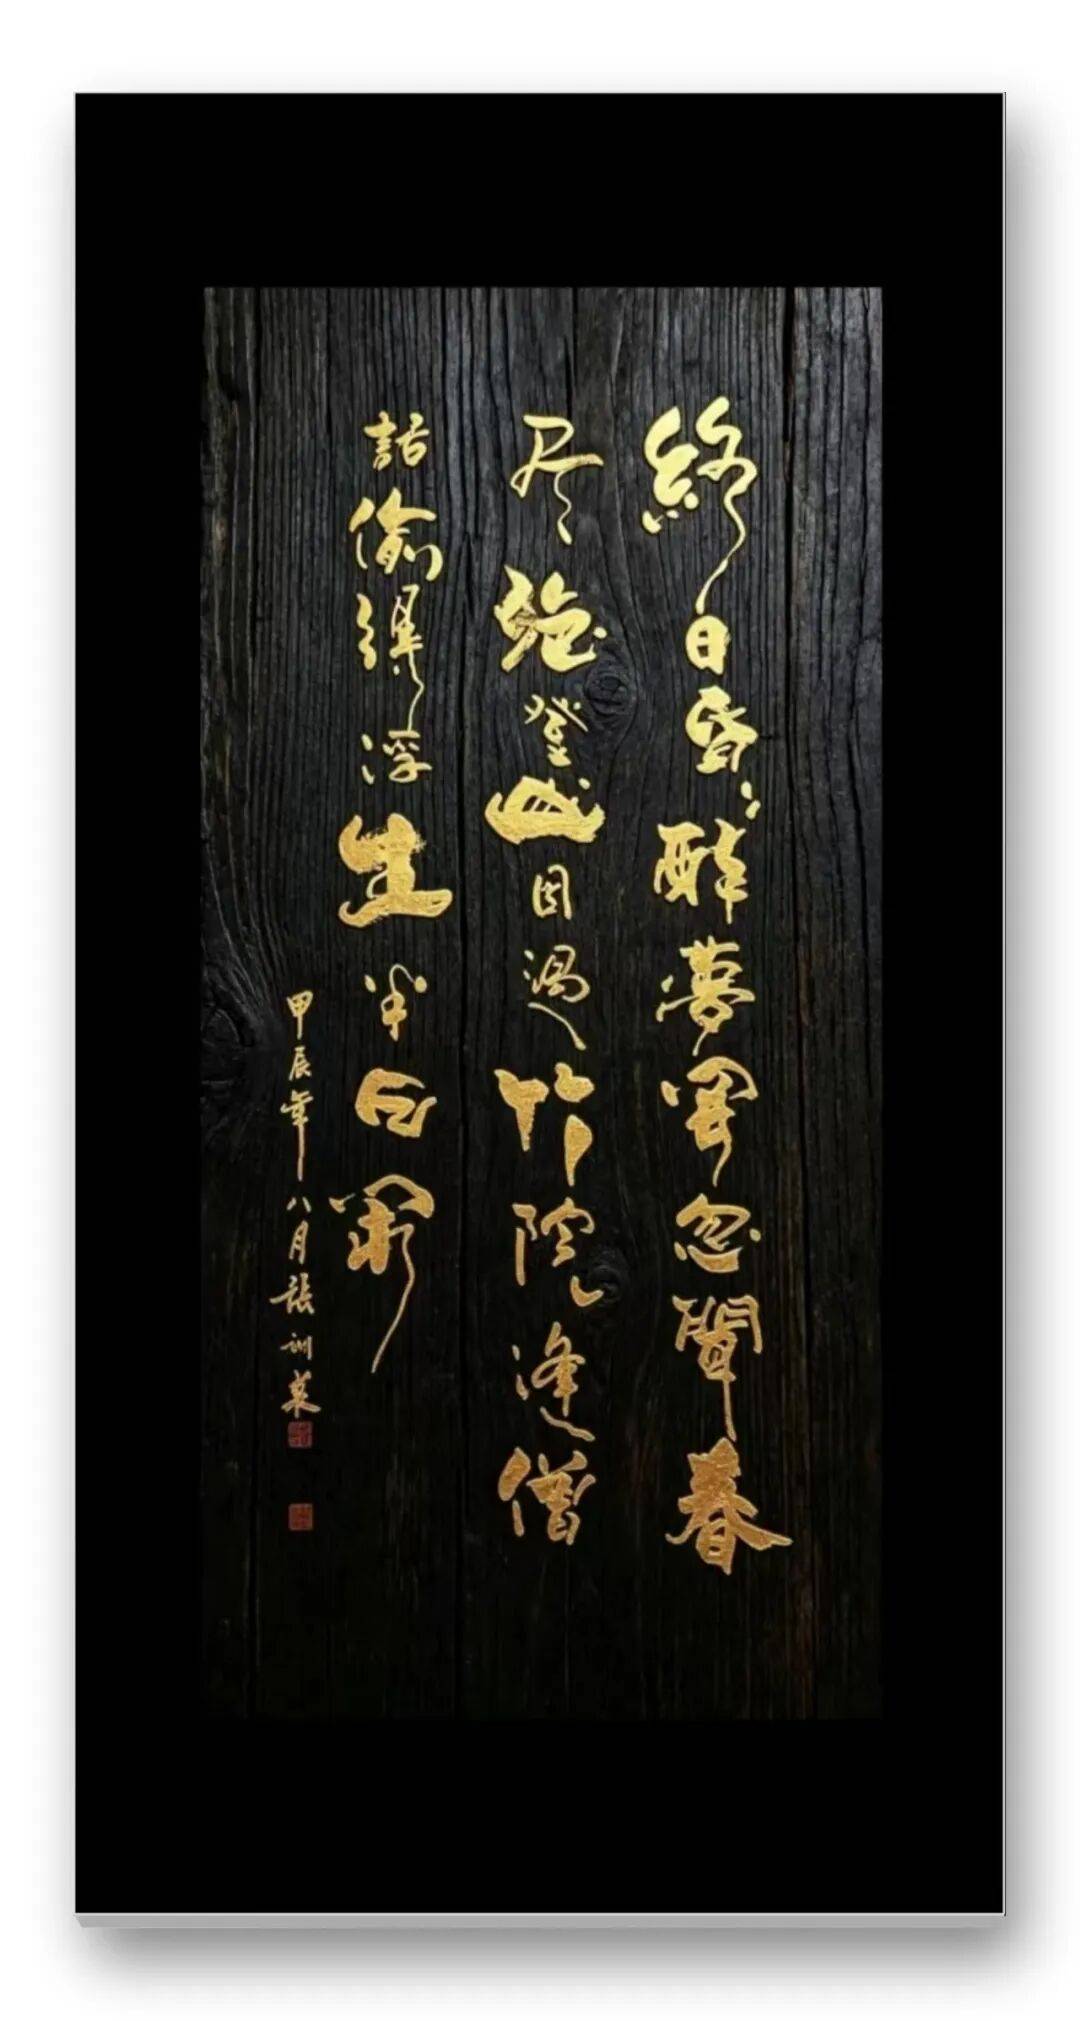 終日昏々醉夢間忽聞春
尽強登山因過竹院逢僧
話偷得浮生半日閑
甲辰年八月張训